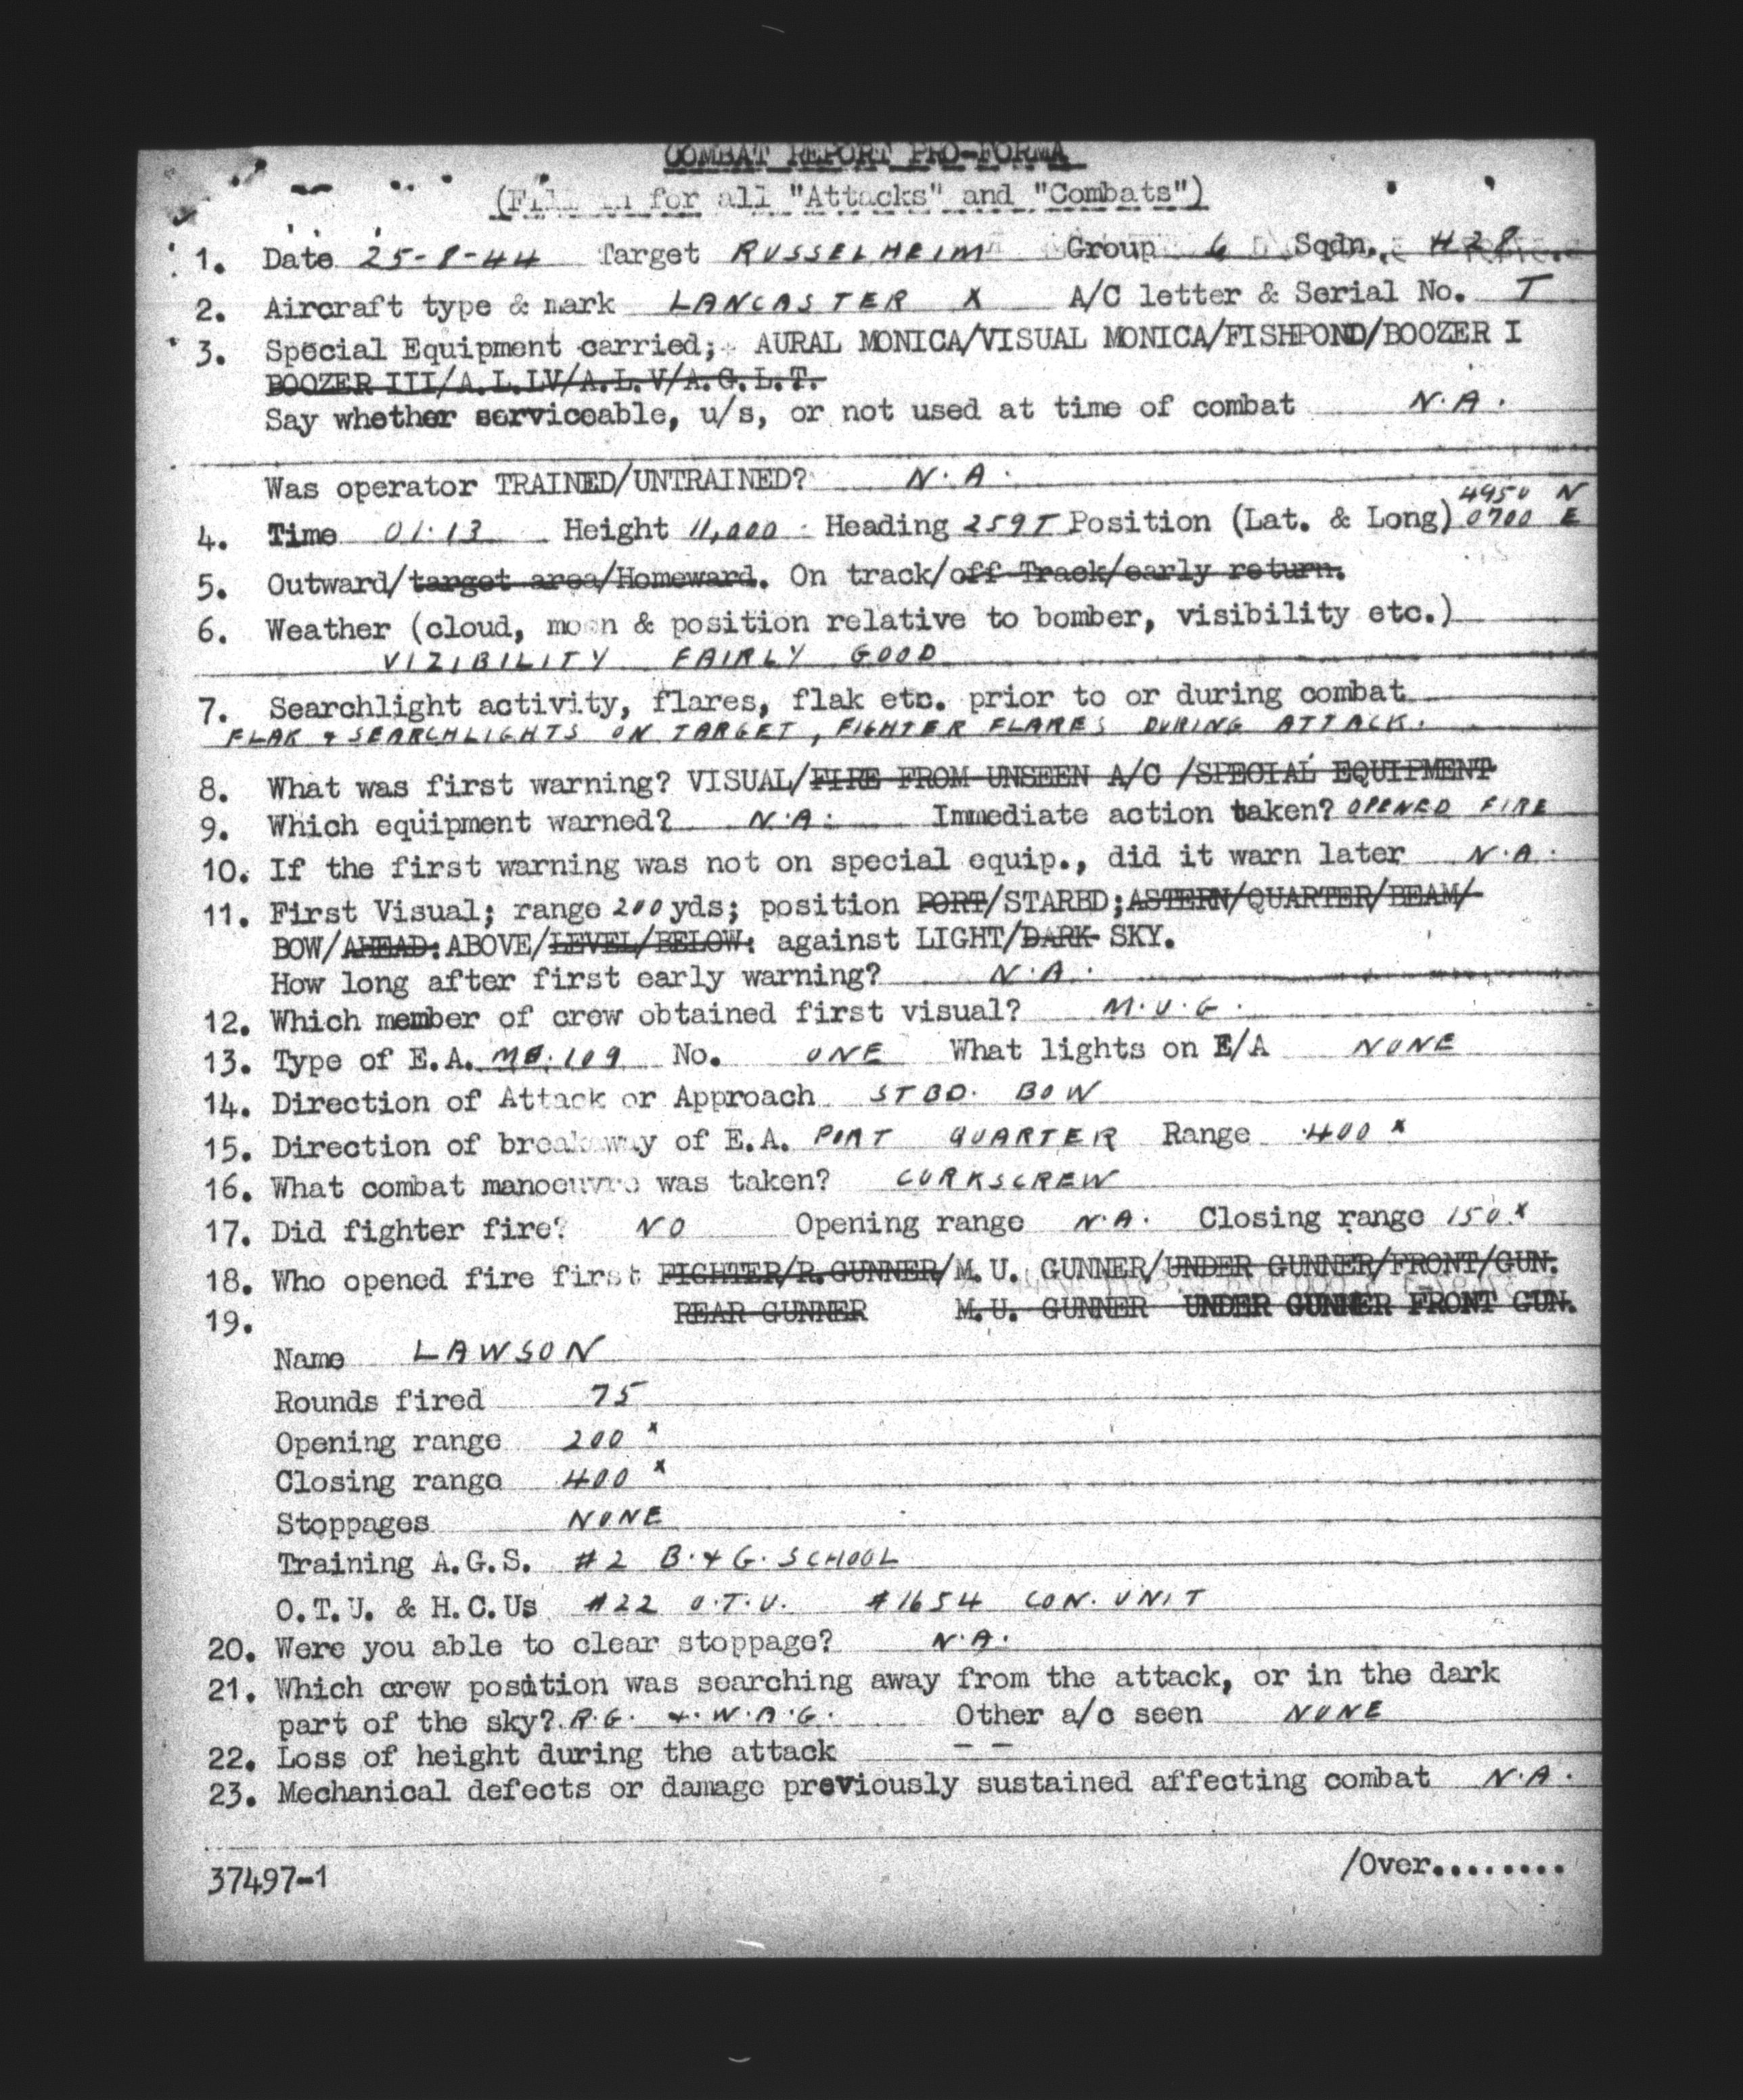 COMBAT REPORT PRO-FORMA
(Fill in for all "Attacks" and "Combats")
1. Date 25-8-44 Target RUSSELHEIM Group 6 Sqdn. 428
2. Aircraft type & mark LANCASTER X A/C letter & Serial No. T
3. Special Equipment carried; AURAL MONICA/VISUAL MONICA/FISHPOND/BOOZER I
BOOZER III/A.I.IV/A.I.V/A.G.L.T.
Say whether serviceable, u/s, or not used at time of combat N.A.
Was operator TRAINED/UNTRAINED? N.A.
4950 N
4. Time 01.13 Height 11,000 Heading 259T Position (Lat. & Long) 0700 E
5. Outward/target area/Homeward. On track/off Track/early return.
6. Weather (cloud, moon & position relative to bomber, visibility etc.)
VIZIBILITY FAIRLY GOOD
7. Searchlight activity, flares, flak etc. prior to or during combat
FLAK & SEARCHLIGHTS ON TARGET, FIGHTER FLARES DURING ATTACK.
8. What was first warning? VISUAL/FIRE FROM UNSEEN A/C /SPECIAL EQUIPMENT
9. Which equipment warned? N.A. Immediate action taken? OPENED FIRE
10. If the first warning was not on special equip., did it warn later N.A.
11. First Visual; range 200 yds; position PORT/STARBD;ASTERN/QUARTER/BEAM/
BOW/AHEAD:ABOVE/LEVEL/BELOW: against LIGHT/DARK SKY.
How long after first early warning? N.A.
12. Which member of crew obtained first visual? M.U.G.
13. Type of E.A. ME.109 No. ONE What lights on E/A NONE
14. Direction of Attack or Approach STBD. BOW
15. Direction of breakaway of E.A. PORT QUARTER Range 400 x
16. What combat manoeuvre was taken? CORKSCREW
17. Did fighter fire? NO Opening range N.A. Closing range 150 x
18. Who opened fire first FIGHTER/R.GUNNER/M.U. GUNNER/UNDER GUNNER/FRONT/GUN.
19. REAR GUNNER M.U. GUNNER UNDER GUNNER FRONT GUN.
Name LAWSON
Rounds fired 75
Opening range 200 x
Closing range 400 x
Stoppages NONE
Training A.G.S. #2 B.& G. SCHOOL
O.T.U. & H.C.Us #22 O.T.U. #1654 CON. UNIT
20. Were you able to clear stoppage? N.A.
21. Which crew position was searching away from the attack, or in the dark
part of the sky? R.G. & W.A.G. Other a/c seen NONE
22. Loss of height during the attack - -
23. Mechanical defects or damage previously sustained affecting combat N.A.
37497-1 /Over........